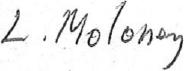 L. Moloney